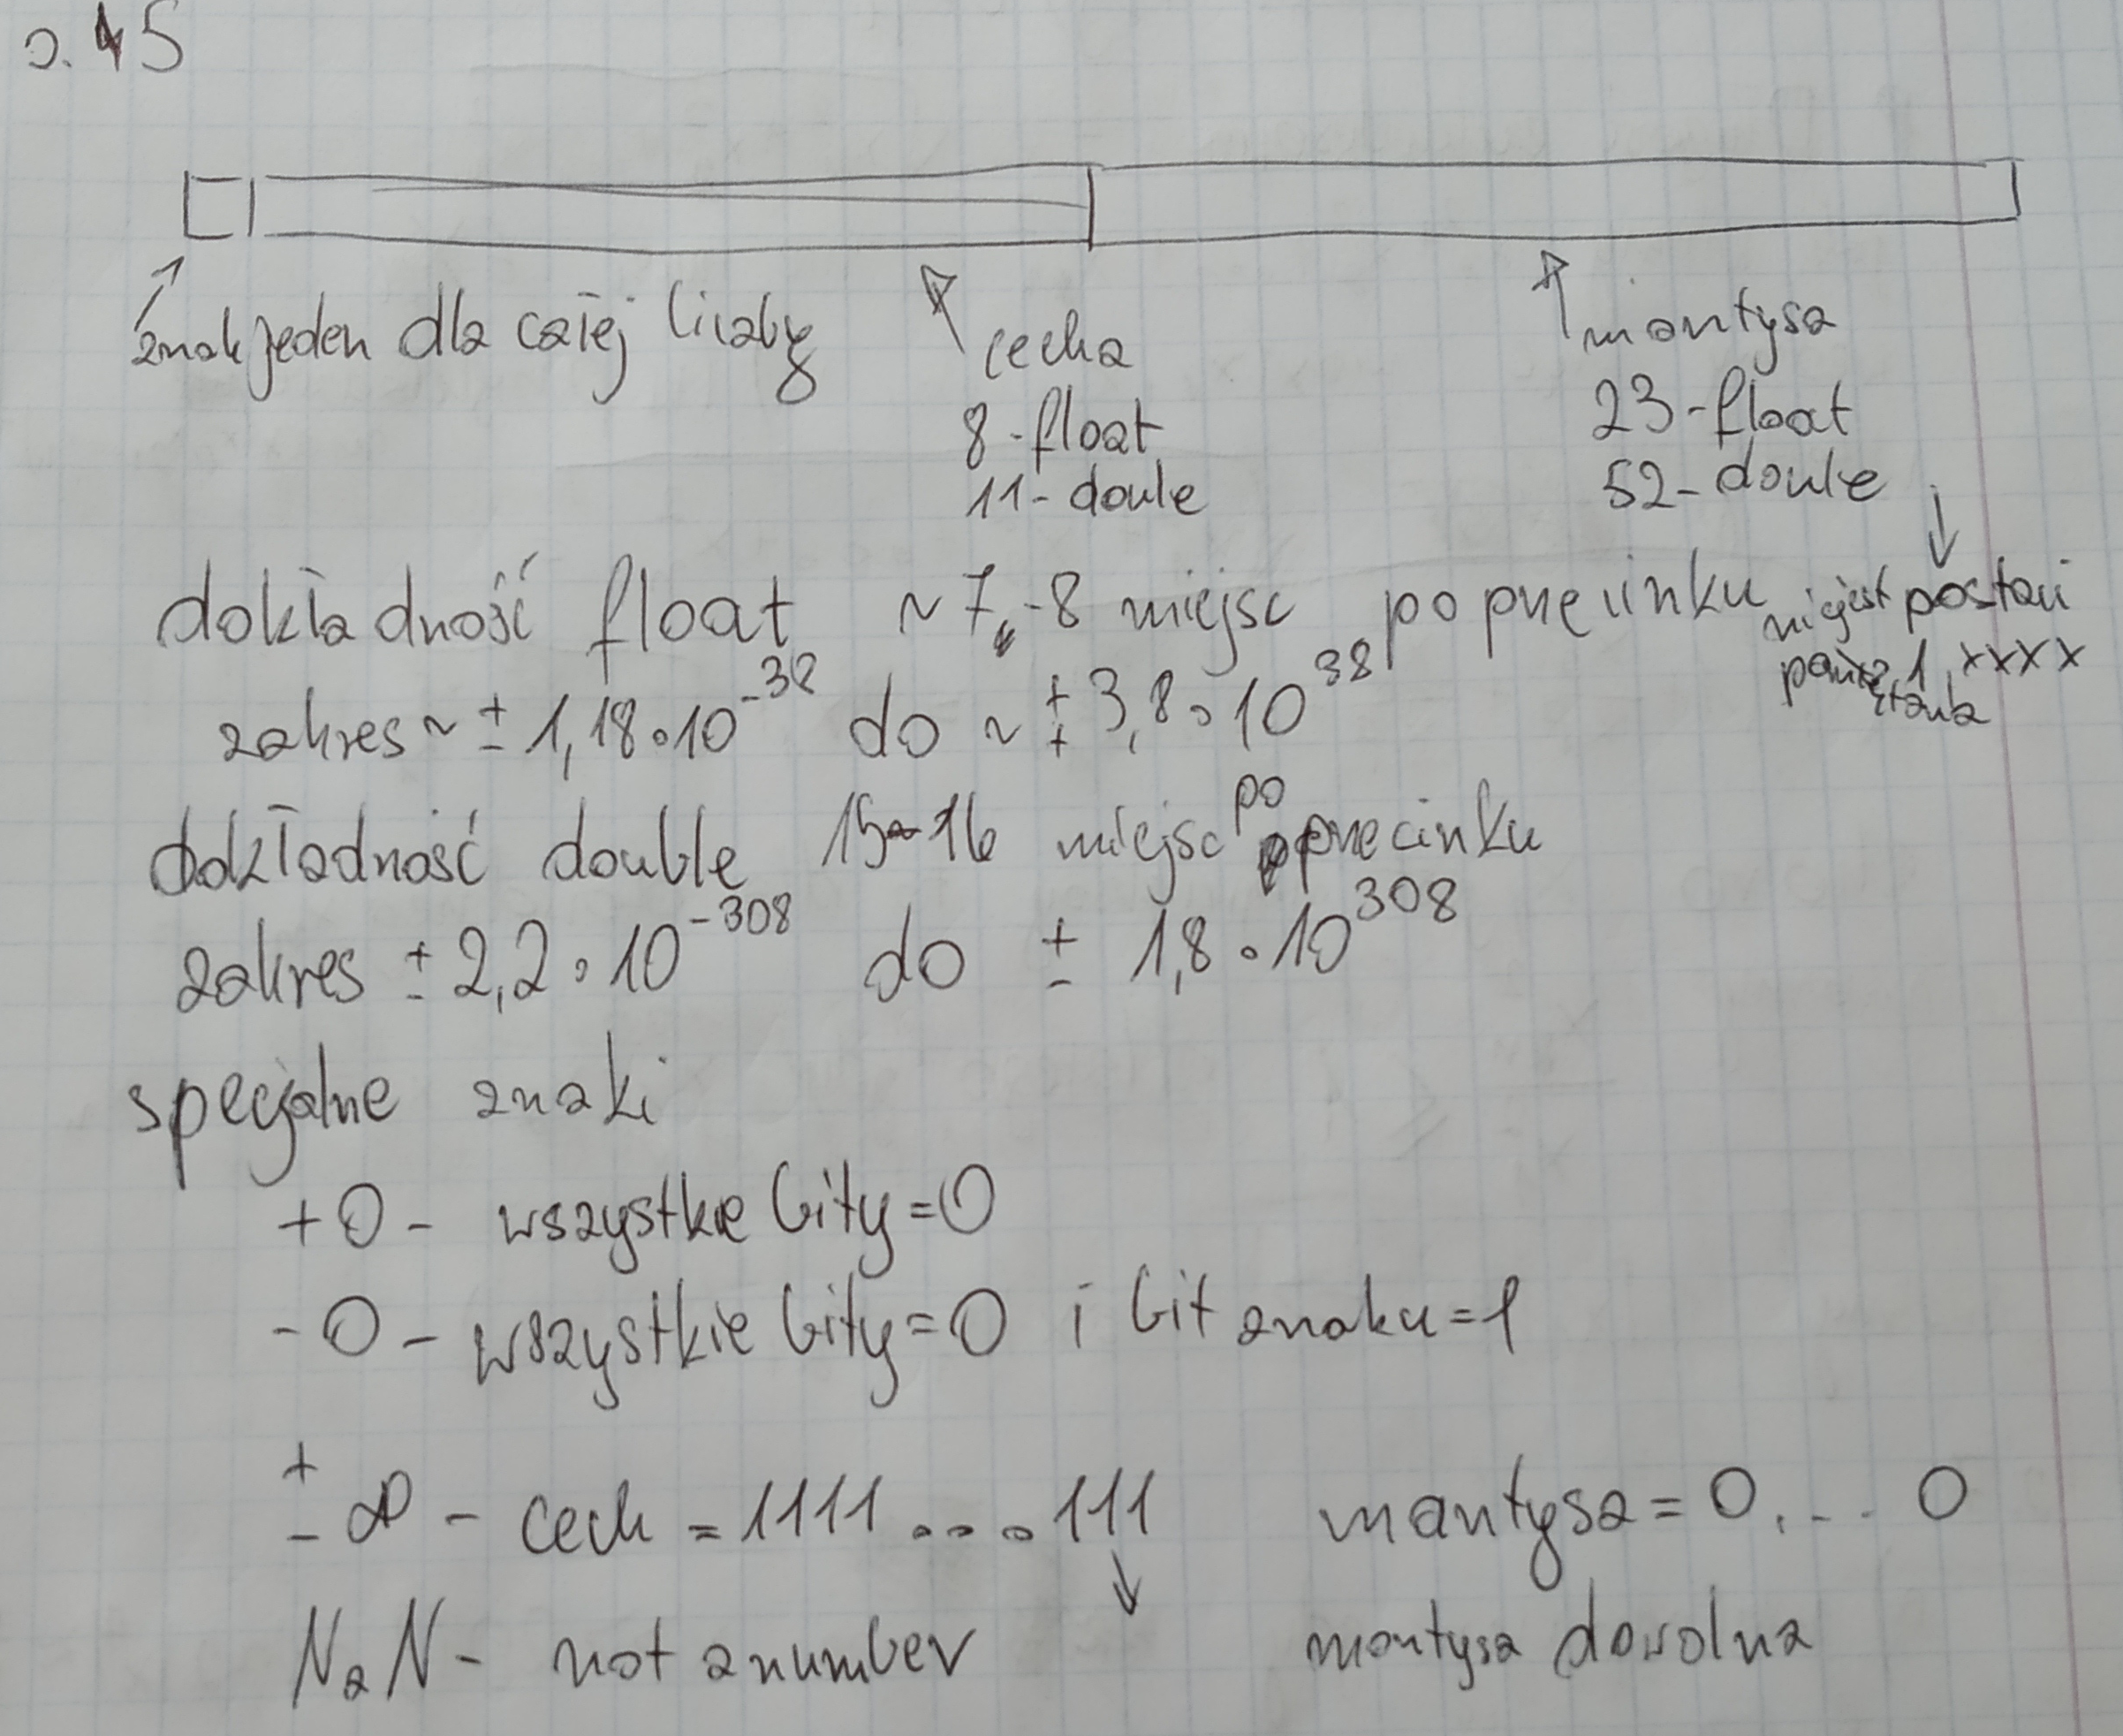 0.45
znak jeden dla całej liczby
cecha
8-float
11-doule
mantysa
23-float
52-doule
dokładność float ~7-8 miejsc po przecinku
nie jest pamiętana
postaci 1,xxxx
zakres ~ ± 1,18·10^-38 do ~ ± 3,8·10^38
dokładność double 15-16 miejsc po przecinku
zakres ± 2,2·10^-308 do ± 1,8·10^308
specjalne znaki
+0 - wszystkie bity=0
-0 - wszystkie bity=0 i bit znaku=1
± ∞ - cech = 1111....111 mantysa = 0...0
NaN - not a number mantysa dowolna